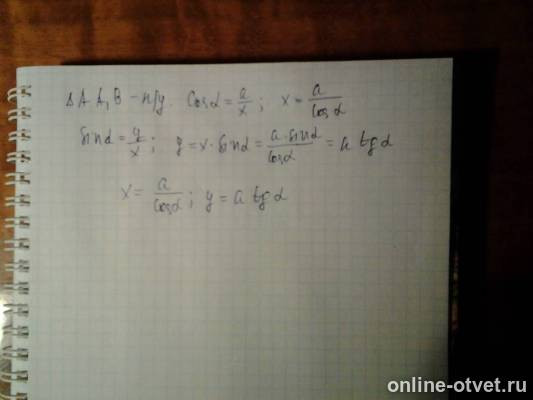 Δ A A₁ B – п/у. cosα = a/x ; x = a/cosα
sinα = y/x ; y = x · sinα = a·sinα/cosα = a tgα
x = a/cosα ; y = a tgα
online-otvet.ru